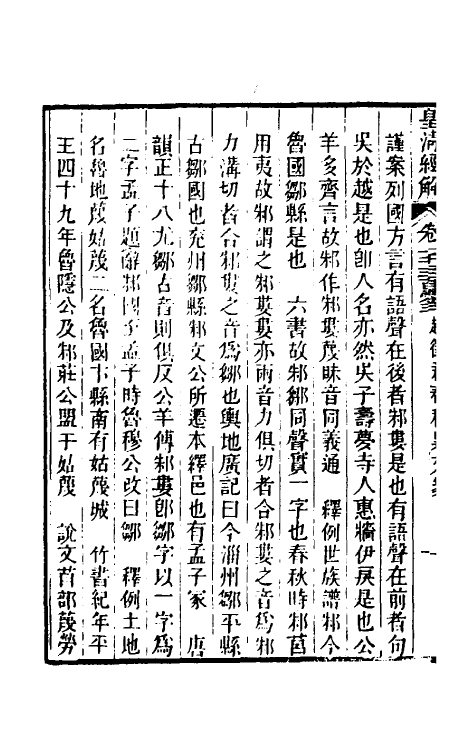 皇清經解
謹案列國方言有語聲在後者邾婁是也有語聲在前者句
吳於越是也卽人名亦然吳子壽夢寺人惠牆伊戾是也公
羊多齊言故邾作邾婁蔑昧音同義通　釋例世族譜邾今
魯國鄒縣是也　六書故邾鄒同聲實一字也春秋時邾莒
用夷故邾謂之邾婁婁亦兩音力俱切者合邾婁之音爲邾
力溝切者合邾婁之音爲鄒也輿地廣記曰今淄州鄒平縣
古鄒國也兖州鄒縣邾文公所遷本繹邑也有孟子冢　唐
韻正十八尤鄒古音則俱反公羊傳邾婁卽鄒字以一字爲
二字孟子題辭邾國至孟子時魯穆公改曰鄒　釋例土地
名魯地蔑姑蔑二名魯國卞縣南有姑蔑城　竹書紀年平
王四十九年魯隱公及邾莊公盟于姑蔑　說文苜部蔑勞